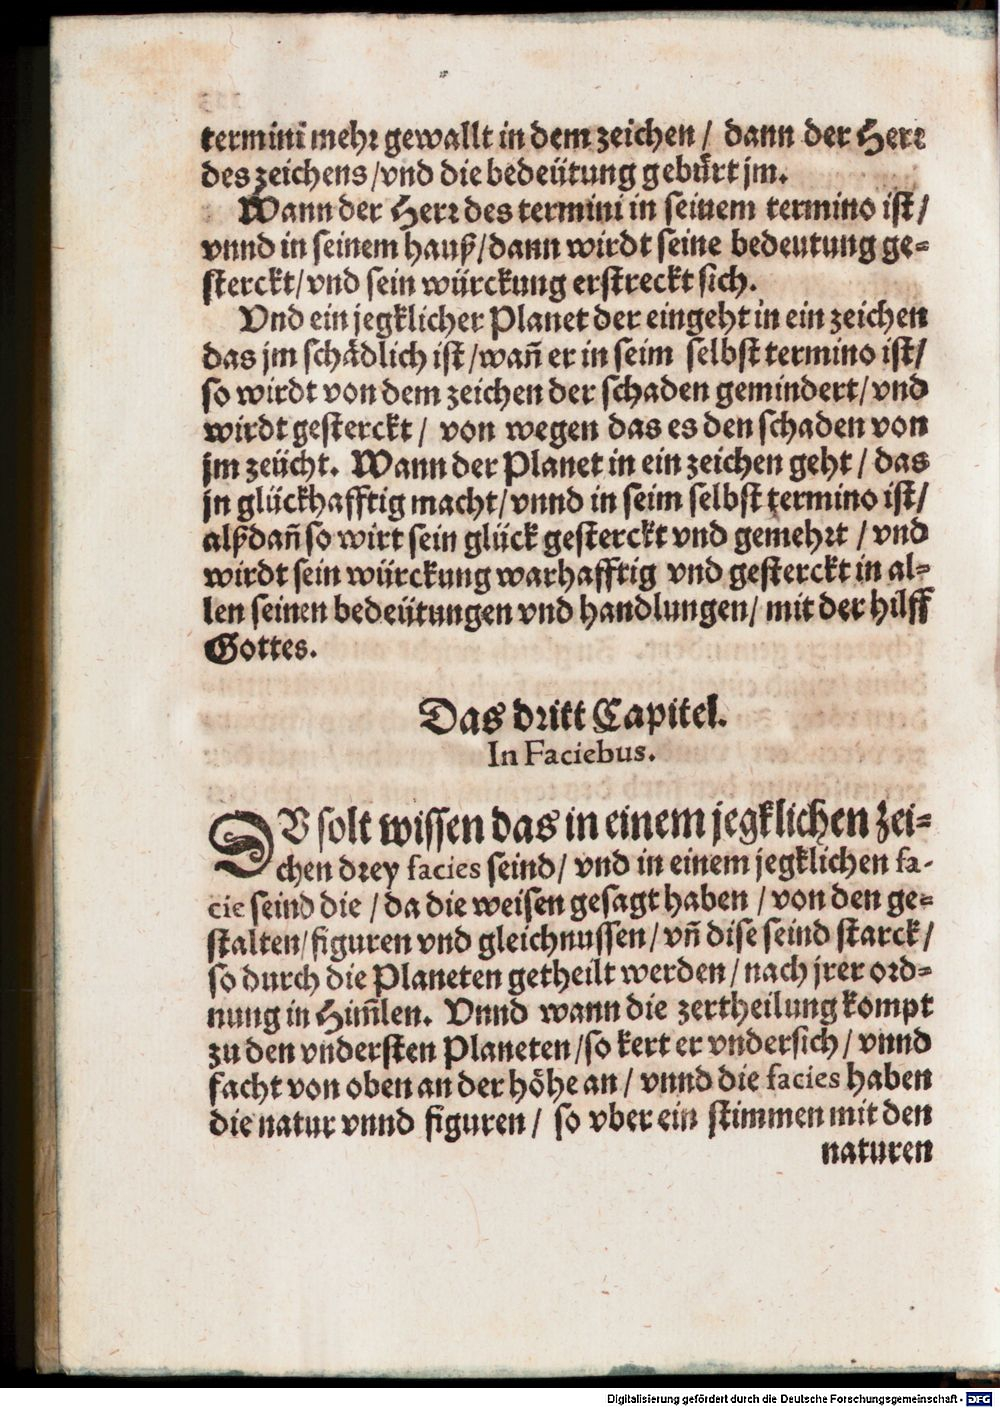 termini mehr gewallt in dem zeichen / dann der Herr
des zeichens / vnd die bedeütung gebürt jm.
Wann der Herr des termini in seinem termino ist /
vnnd in seinem hauß / dann wirdt seine bedeutung ge=
sterckt / vnd sein würckung erstreckt sich.
Vnd ein jegklicher Planet der eingeht in ein zeichen
das jm schädlich ist / wañ er in seim selbst termino ist /
so wirdt von dem zeichen der schaden gemindert / vnd
wirdt gesterckt / von wegen das es den schaden von
jm zeücht. Wann der Planet in ein zeichen geht / das
jn glückhafftig macht / vnnd in seim selbst termino ist /
alßdañ so wirt sein glück gesterckt vnd gemehrt / vnd
wirdt sein würckung warhafftig vnd gesterckt in al=
len seinen bedeütungen vnd handlungen / mit der hilff
Gottes.
Das dritt Capitel.
In Faciebus.
DV solt wissen das in einem jegklichen zei=
chen drey facies seind / vnd in einem jegklichen fa-
cie seind die / da die weisen gesagt haben / von den ge=
stalten / figuren vnd gleichnussen / vñ dise seind starck /
so durch die Planeten getheilt werden / nach jrer ord=
nung in Him̃len. Vnnd wann die zertheilung kompt
zu den vndersten Planeten / so kert er vndersich / vnnd
facht von oben an der höhe an / vnnd die facies haben
die natur vnnd figuren / so vber ein stimmen mit den
naturen
Digitalisierung gefördert durch die Deutsche Forschungsgemeinschaft - DFG